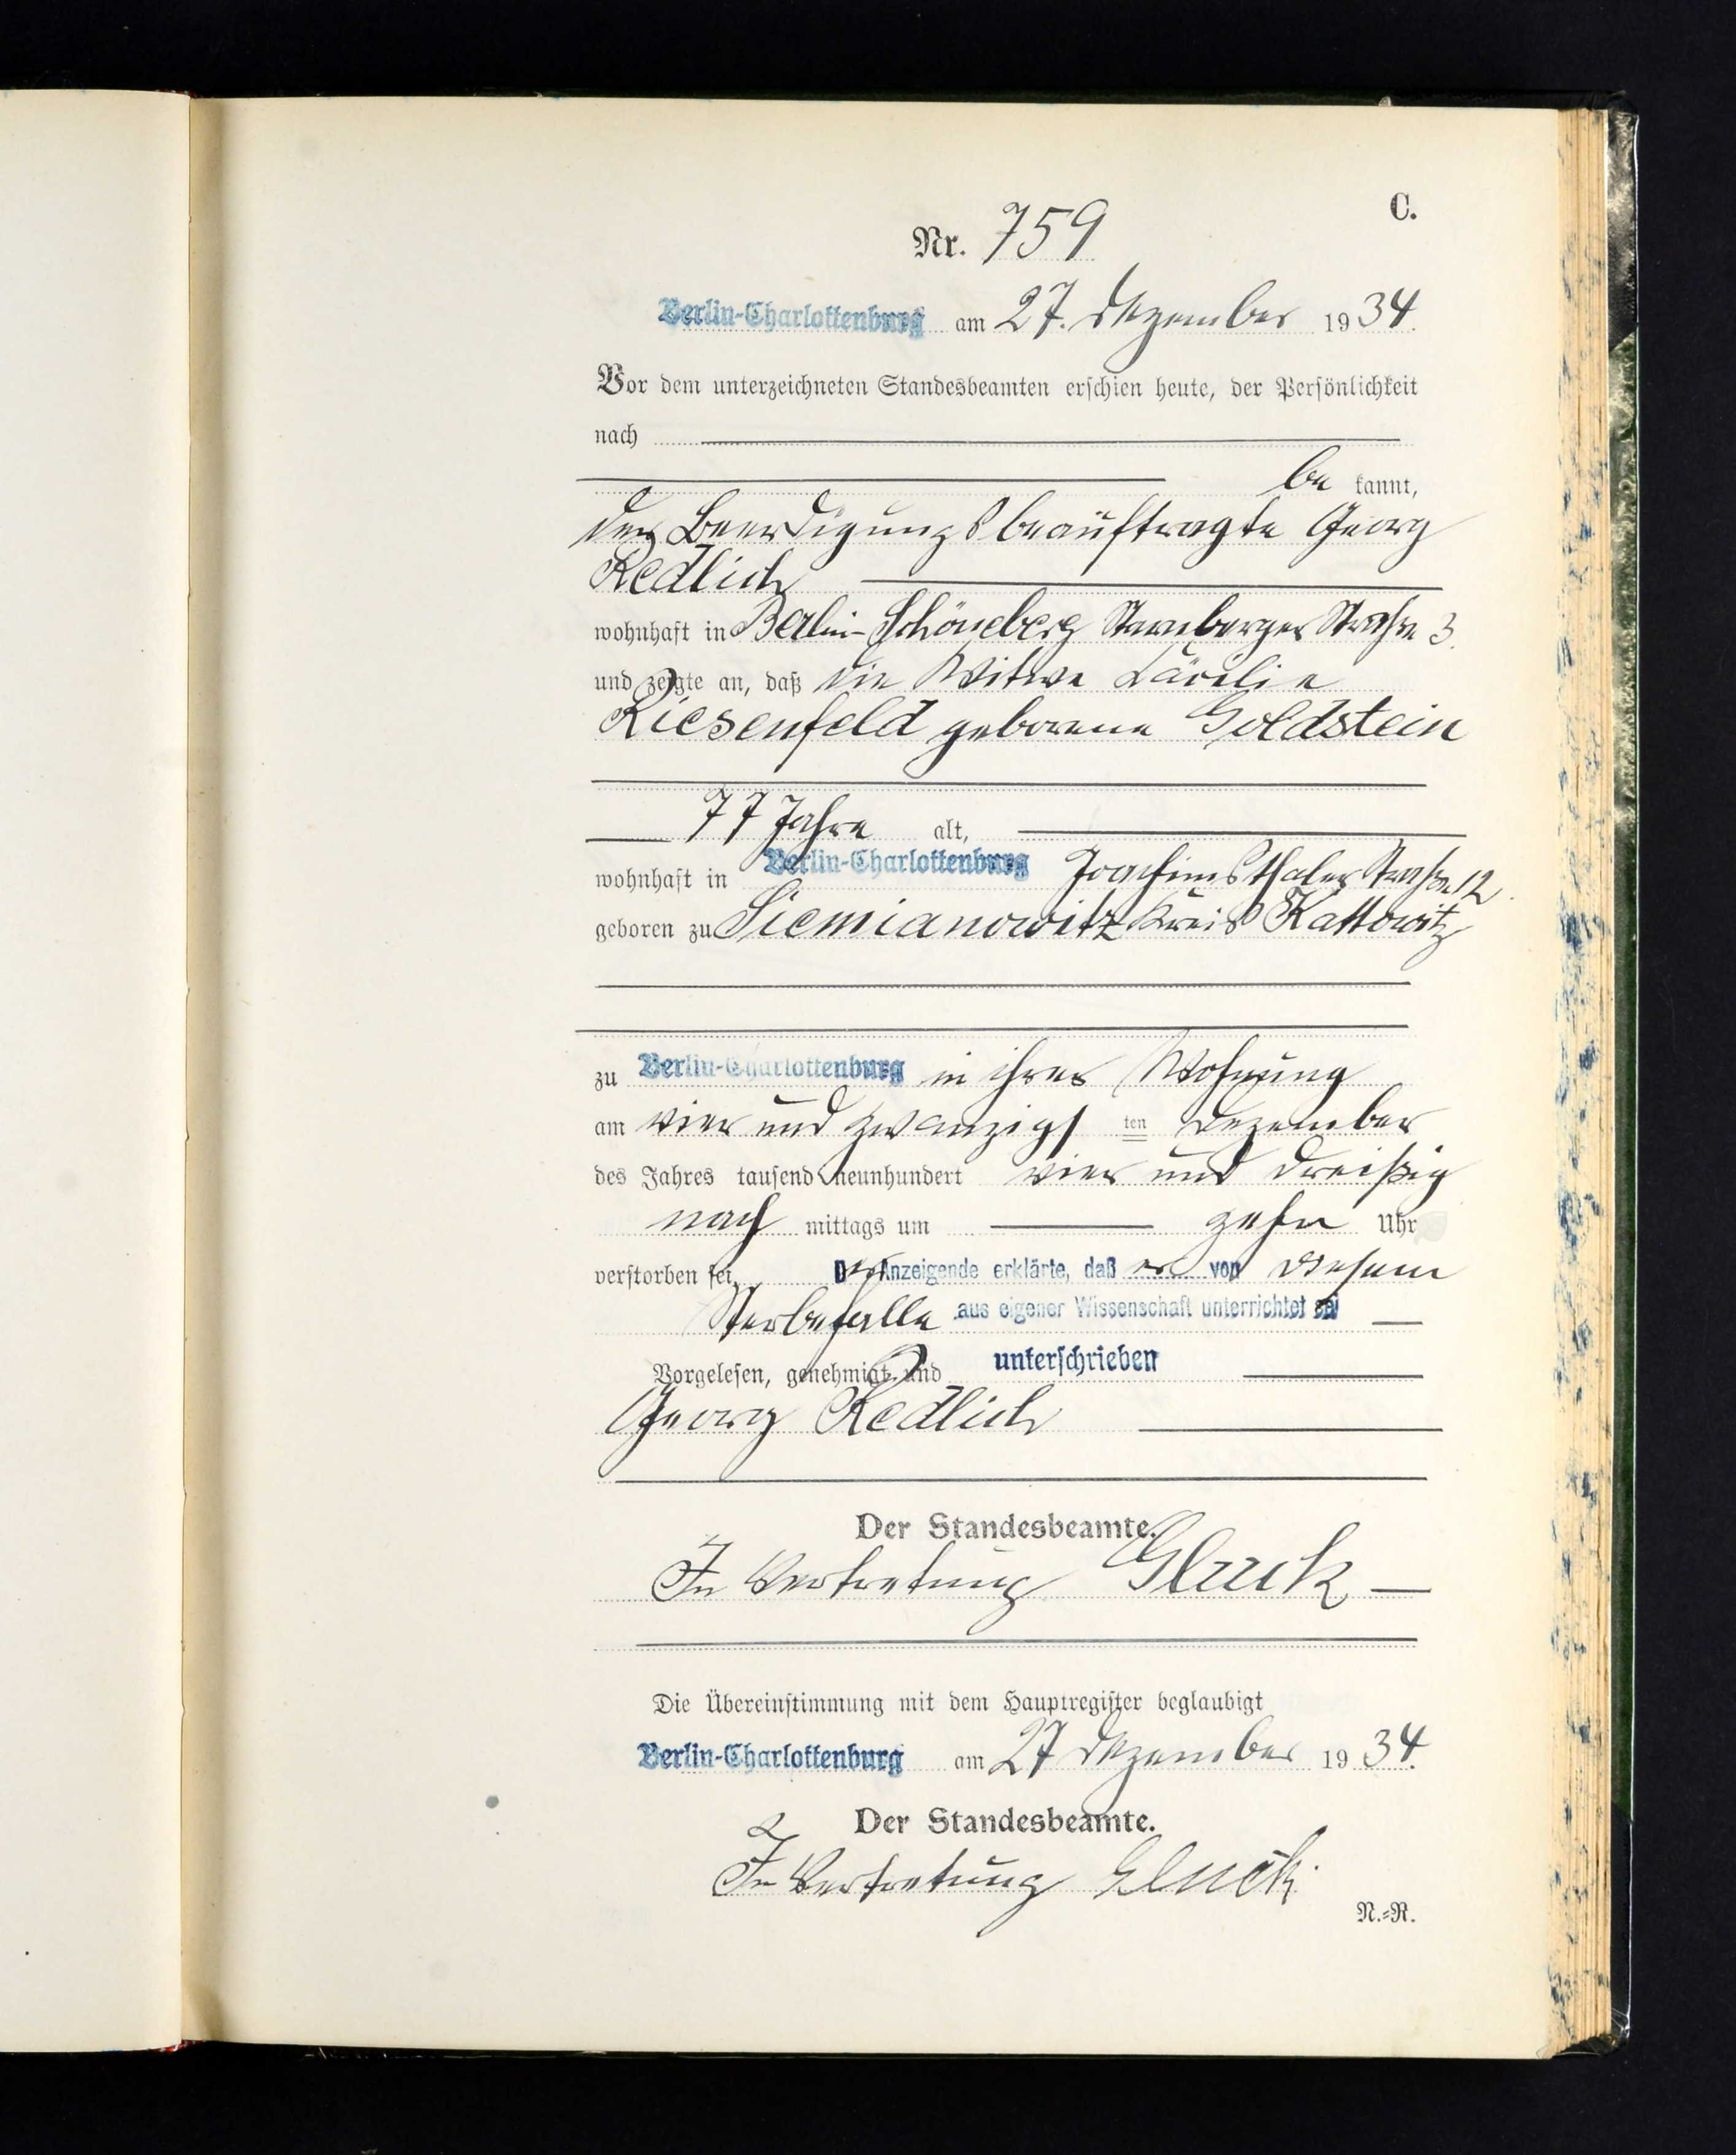 C.
Nr. 759
Berlin-Charlottenburg am 27. Dezember 1934.
Vor dem unterzeichneten Standesbeamten erschien heute, der Persönlichkeit
nach
be kannt,
der Beerdigungsbeauftragte Georg
Redlich
wohnhaft in Berlin-Schöneberg Starnberger Straße 3.
und zeigte an, daß die Witwe Cäcilie
Riesenfeld geborene Goldstein
77 Jahre alt,
wohnhaft in Berlin-Charlottenburg Joachimsthaler Straße 12.
geboren zu Siemianowitz Kreis Kattowitz
zu Berlin-Charlottenburg in ihrer Wohnung
am vier und zwanzigs ten Dezember
des Jahres tausend neunhundert vier und dreißig
nach mittags um zehn Uhr
verstorben sei. Der Anzeigende erklärte, daß er von diesem
Sterbefalle aus eigener Wissenschaft unterrichtet sei
Vorgelesen, genehmigt und unterschrieben
Georg Redlich
Der Standesbeamte.
In Vertretung Gluck
Die Übereinstimmung mit dem Hauptregister beglaubigt
Berlin-Charlottenburg am 27 Dezember 1934.
Der Standesbeamte.
In Vertretung Gluck.
N.=R.